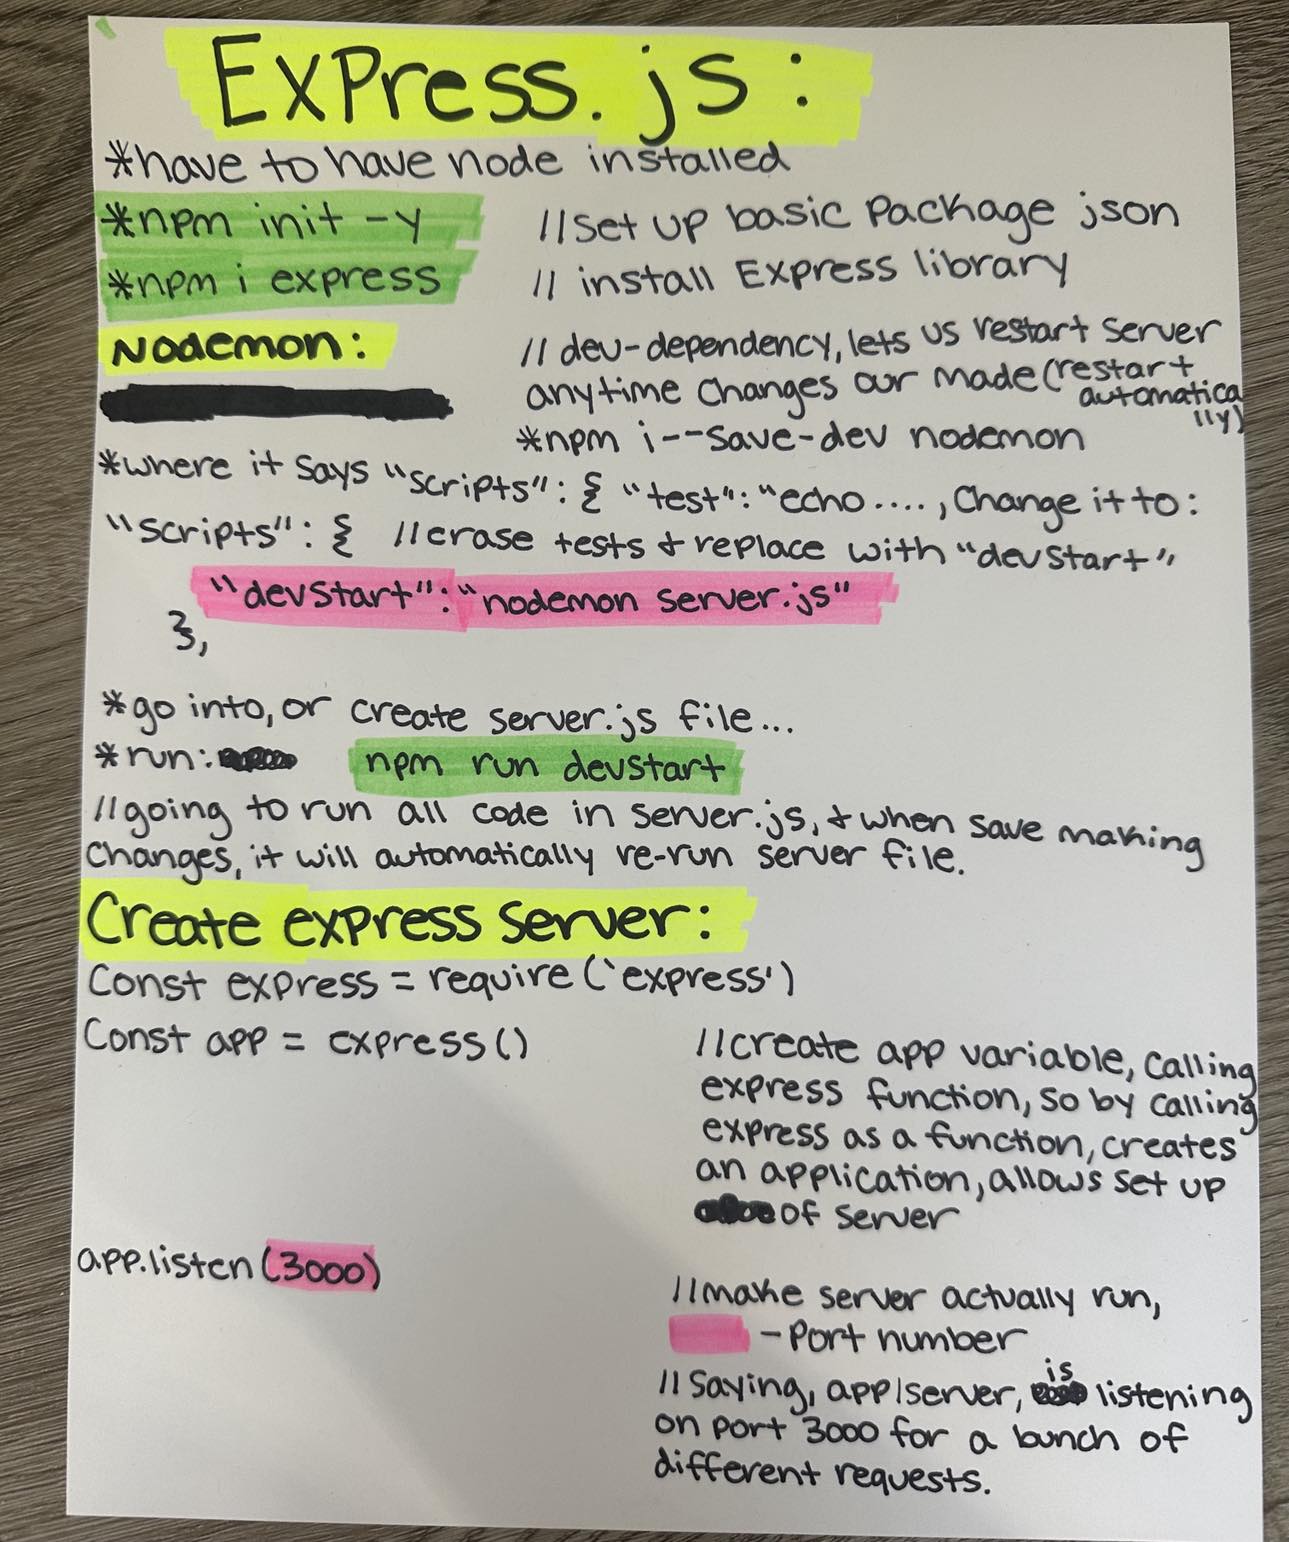 Express.js:
*have to have node installed
*npm init -y //set up basic package json
*npm i express // install Express library
Nodemon: // dev-dependency, lets us restart server
anytime changes our made (restart
automatica
lly)
*npm i--save-dev nodemon
*where it says "scripts": { "test": "echo...., Change it to:
"scripts": { //erase tests & replace with "devStart"
"devStart": "nodemon server.js"
},
*go into, or create server.js file...
*run: npm run devStart
//going to run all code in server.js, & when save making
changes, it will automatically re-run server file.
Create express server:
Const express = require('express')
Const app = express()
//create app variable, calling
express function, so by calling
express as a function, creates
an application, allows set up
of server
app.listen(3000)
//make server actually run,
- Port number
//Saying, app/server, is listening
on port 3000 for a bunch of
different requests.